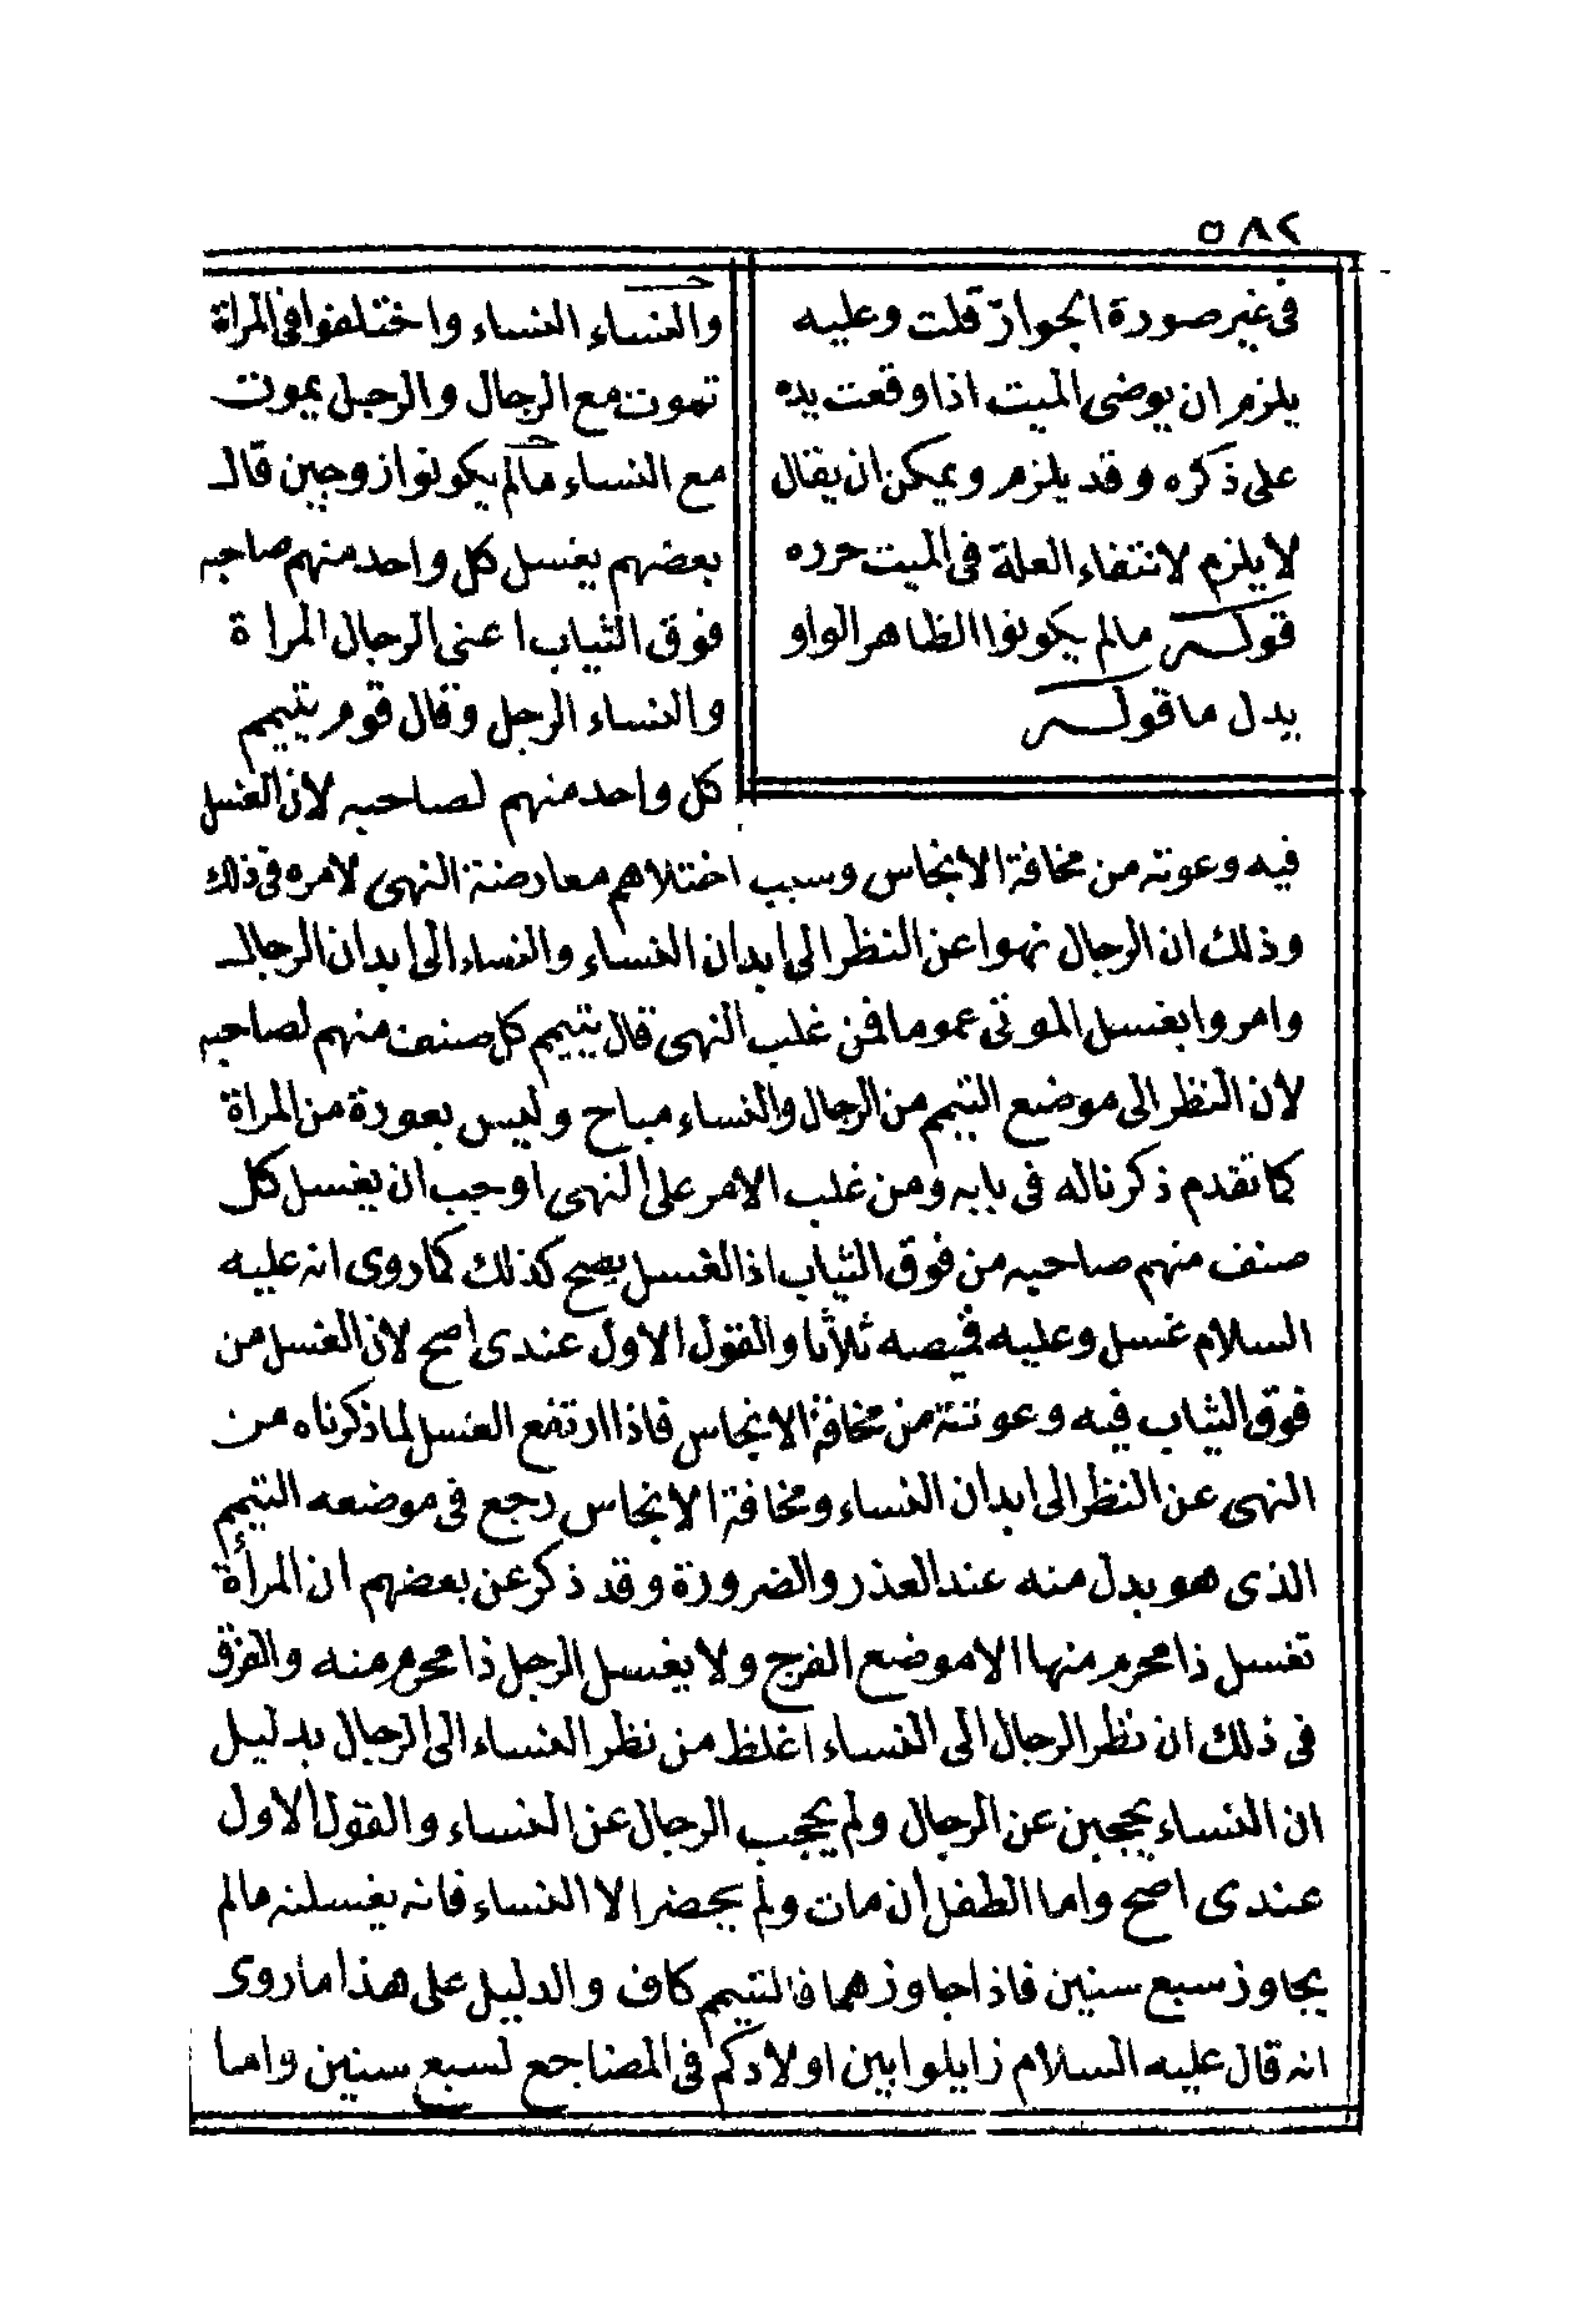 ٥٨٢
فى غير صورة الجواز قلت وعليه
يلزم ان يوضى الميت اذا وقعت يده
على ذكره وقد يلزم ويمكن ان يقال
لا يلزم لانتفاء العلة فى الميت حرره
قوله مالم يكونوا الظاهر الواو
بدل ما قوله
والنساء النساء واختلفوا فى المراة
تموت مع الرجال والرجل يموت
مع النساء مالم يكونوا زوجين قال
بعضهم يغسل كل واحد منهم صاحبه
فوق الثياب اعنى الرجال المراة
والنساء الرجل وقال قوم يتيمم
كل واحد منهم لصاحبه لان الغسل
فيه وعوثة من مخافة الانجاس وسبب اختلاهم معارضة النهى لامره فى ذلك
وذلك ان الرجال نهوا عن النظر الى ابدان النساء والنساء الى ابدان الرجال
وامروا بغسل الموتى عموما فمن غلب النهى قال يتيمم كل صنف منهم لصاحبه
لان النظر الى موضع التيمم من الرجال والنساء مباح وليس بعورة من المراة
كما تقدم ذكرنا له فى بابه ومن غلب الامر على النهى اوجب ان يغسل كل
صنف منهم صاحبه من فوق الثياب اذ الغسل يصح كذلك كما روى انه عليه
السلام غسل وعليه قميصه ثلاثا والقول الاول عندى اصح لان الغسل من
فوق الثياب فيه وعوثة من مخافة الانجاس فاذا ارتفع الغسل لما ذكرناه من
النهى عن النظر الى ابدان النساء ومخافة الانجاس رجع فى موضعه التيمم
الذى هو بدل منه عند العذر والضرورة وقد ذكر عن بعضهم ان المرأة
تغسل ذا محرم منها الا موضع الفرج ولا يغسل الرجل ذا محرم منه والفرق
فى ذلك ان نظر الرجال الى النساء اغلظ من نظر النساء الى الرجال بدليل
ان النساء يحجبن عن الرجال ولم يحجب الرجال عن النساء والقول الاول
عندى اصح واما الطفل ان مات ولم يحضر الا النساء فانه يغسلنه مالم
يجاوز سبع سنين فاذا جاوزهما فالتيمم كاف والدليل على هذا ما روى
انه قال عليه السلام زايلوا بين اولادكم فى المضاجع لسبع سنين واما